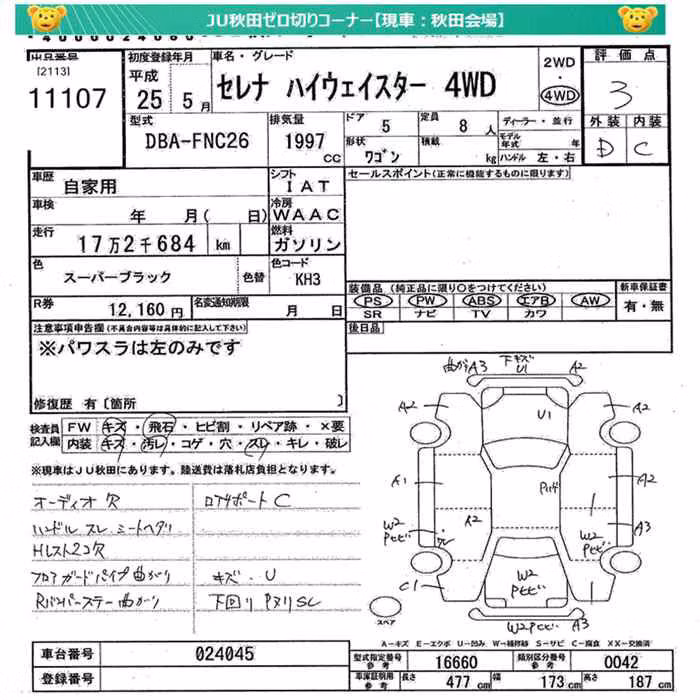 JU秋田ゼロ切りコーナー【現車：秋田会場】
出品番号
[2113]
11107
初度登録年月
平成
25 5月
車名・グレード
セレナ ハイウェイスター 4WD
2WD
・
4WD
評価点
3
外装 内装
D C
型式
DBA-FNC26
排気量
1997
CC
ドア
5
定員
8 人
形状
ワゴン
積載
kg
ディーラー・並行
モデル年式 年
ハンドル 左・右
車歴
自家用
シフト
IAT
車検
年 月( 日)
冷房
WAAC
走行
17万2千684 km
燃料
ガソリン
色
スーパーブラック
色替
色コード
KH3
R券
12,160円
名変通知期限
月 日
セールスポイント(正常に機能するものに限ります)
装備品 (純正品に限り○をつけてください)
PS PW ABS エアB AW
SR ナビ TV カワ
新車保証書
有・無
後日品
注意事項申告欄(不具合内容等は具体的に記入して下さい)
※パワスラは左のみです
修復歴 有〔箇所 〕
検査員記入欄
FW キズ・飛石・ヒビ割・リペア跡・×要
内装 キズ・汚レ・コゲ・穴・スレ・キレ・破レ
※現車はJU秋田にあります。陸送費は落札店負担となります。
オーディオ欠
ハンドル スレ シートヘタリ
Hレスト2コ欠
フロアガードパイプ曲がり
Rバンパーステー曲がり
ロアサポート C
キズ、U
下回り PヌリSC
曲がり A3
下キズ
U1
A2
A2
U1
A2
A1
A2
A2
A3
W2
Pセビ
W2
Pセビ
C1
W2Pセビ
A3
スペア
A－キズ E－エクボ U－凹み W－補修跡 S－サビ C－腐食 XX－交換済
車台番号
024045
登録番号
型式指定番号
参考
16660
類別区分番号
参考
0042
車庫証明用
参考
長さ 477 cm
幅 173 cm
高さ 187 cm